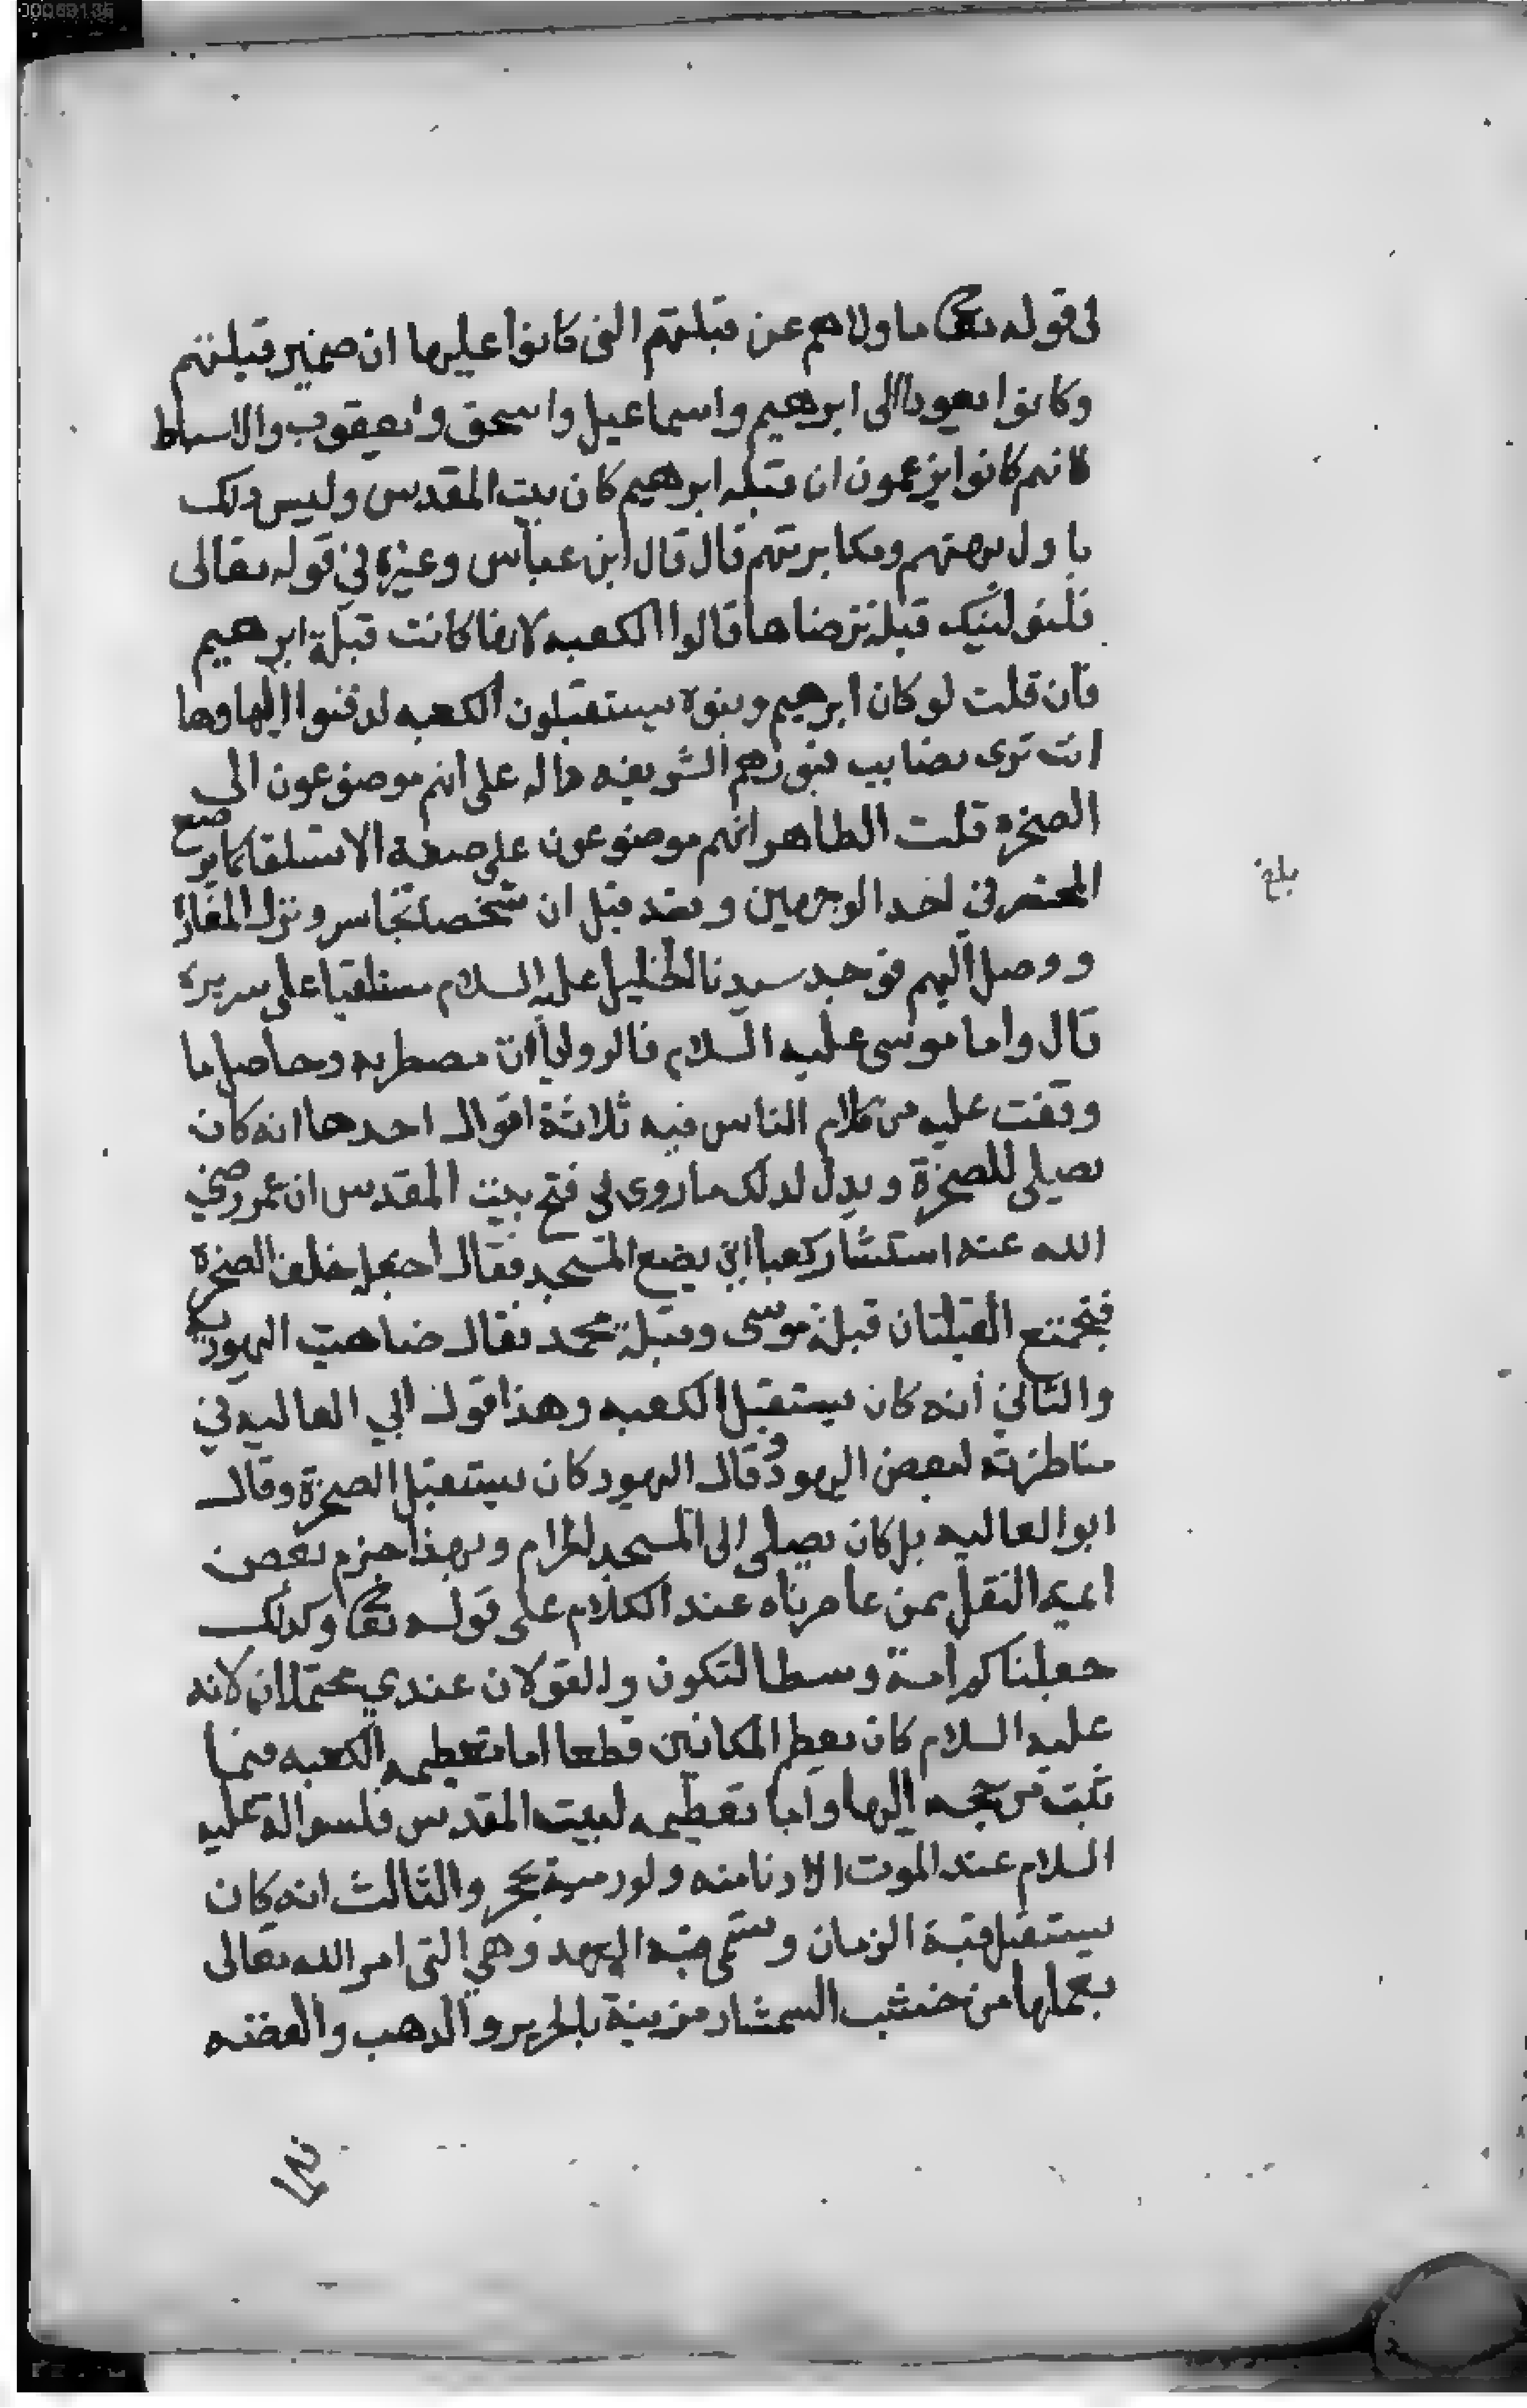 في قوله تعالى ما ولاهم عن قبلتهم التي كانوا عليها ان ضمير قبلتهم
وكانوا يعود الى ابرهيم واسماعيل واسحق ويعقوب والاسباط
فانهم كانوا يزعمون ان قبلة ابرهيم كان بيت المقدس وليس ذلك
باول بهتهم ومكابرتهم قال قال ابن عباس وغيره في قوله تعالى
فلنولينك قبلة ترضاها قالوا الكعبه لانها كانت قبلة ابرهيم
فان قلت لو كان ابرهيم وبنوه يستقبلون الكعبه لدفنوا اليها وها
انت ترى نصايب قبورهم الشريفه داله على انهم موضوعون الى
الصخره قلت الظاهر انهم موضوعون على صفة الاستلقا كما يوضع
المحتضر في احد الوجهين وقد قيل ان شخصا تجاسر ونزل المغار
ووصل اليهم فوجد سيدنا الخليل عليه السلام مستلقيا على سريره
قال واما موسى عليه السلام فالروايات مضطربه وحاصل ما
وقفت عليه من كلام الناس فيه ثلاثة اقوال احدها انه كان
يصلي للصخرة ويدل لذلك ما روى في فتح بيت المقدس ان عمر رضي
الله عنه استشار كعبا اين يضع المسجد فقال اجعل خلف الصخرة
فتجتمع القبلتان قبلة موسى وقبلة محمد فقال ضاهيت اليهودية
والثاني انه كان يستقبل الكعبه وهذا قول ابي العاليه في
مناظرته لبعض اليهود وقال اليهود كان يستقبل الصخرة وقال
ابوالعاليه بل كان يصلي الى المسجد الحرام وبهذا جزم بعض
ايمه النقل ممن عاصرناه عند الكلام على قوله تعالى وكذلك
جعلناكم امة وسطا لتكون والقولان عندي محتملان لانه
عليه السلام كان يعظم المكانين قطعا اما تعظيمه الكعبه فبما
ثبت من حجه اليها واما تعظيمه لبيت المقدس فلسواله عليه
السلام عند الموت الادنا منه ولو رمية بحجر والثالث انه كان
يستقبل قبة الزمان وتسمى قبة العهد وهي التى امر الله تعالى
بعملها من خشب السمشار مزينة بالحرير والذهب والفضه
بلغ